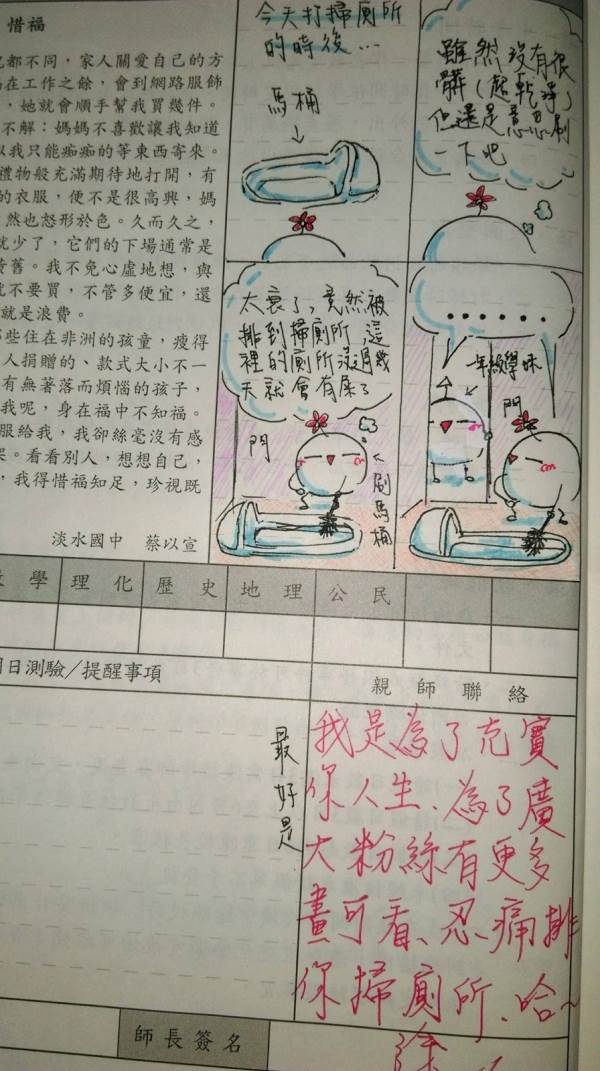 惜福
都不同，家人關愛自己的方
在工作之餘，會到網路服飾
，她就會順手幫我買幾件。
不解：媽媽不喜歡讓我知道
以我只能痴痴的等東西寄來。
禮物般充滿期待地打開，有
的衣服，便不是很高興，媽
然也怒形於色。久而久之，
就少了，它們的下場通常是
舊。我不免心虛地想，與
就不要買，不管多便宜，還
就是浪費。
些住在非洲的孩童，瘦得
人捐贈的、款式大小不一
有無著落而煩惱的孩子，
我呢，身在福中不知福。
服給我，我卻絲毫沒有感
。看看別人，想想自己，
，我得惜福知足，珍視既
淡水國中 蔡以宣
今天打掃廁所
的時後…
馬桶
雖然沒有很
髒(超乾淨)
但還是意思刷
一下吧
太衰了，竟然被
排到掃廁所，這
裡的廁所沒過幾
天就會有屎了
門
刷馬桶
......
一年級學妹
門
學 理化 歷史 地理 公民
日測驗／提醒事項
親師聯絡
最好是
我是為了充實
你人生、為了廣
大粉絲有更多
畫可看、忍痛排
你掃廁所、哈~
師長簽名